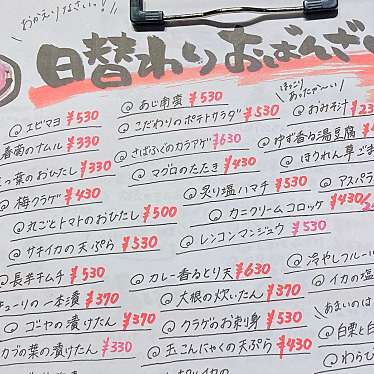 おかえりなさい。!
日替わりおばんざい
ほっこりあったか〜い
@エビマヨ ¥530
@あじ南蛮 ¥530
@おみそ汁 ¥23
春雨のナムル ¥330
@こだわりのポテトサラダ ¥530
@ゆず香る湯豆腐 ¥4
っ葉のおひたし ¥330
@さばふぐのカラアゲ ¥630
@ほうれん草ごま
@梅クラゲ ¥430
@マグロのたたき ¥430
@アスパラ
@丸ごとトマトのおひたし ¥500
@炙り塩ハマチ ¥530
@カニクリームコロッケ ¥430/
@サキイカの天ぷら ¥530
@レンコンマンジュウ ¥530
@長芋キムチ ¥530
@カレー香るとり天 ¥630
@冷やしフルー
キューリの一本漬 ¥370
@大根の炊いたん ¥370
@イカの塩
@ゴーヤの漬けたん ¥370
@クラゲのお刺身 ¥530
あまいのは
@白栗と白
カブの葉の漬けたん ¥330
@玉こんにゃくの天ぷら ¥430
@わらび